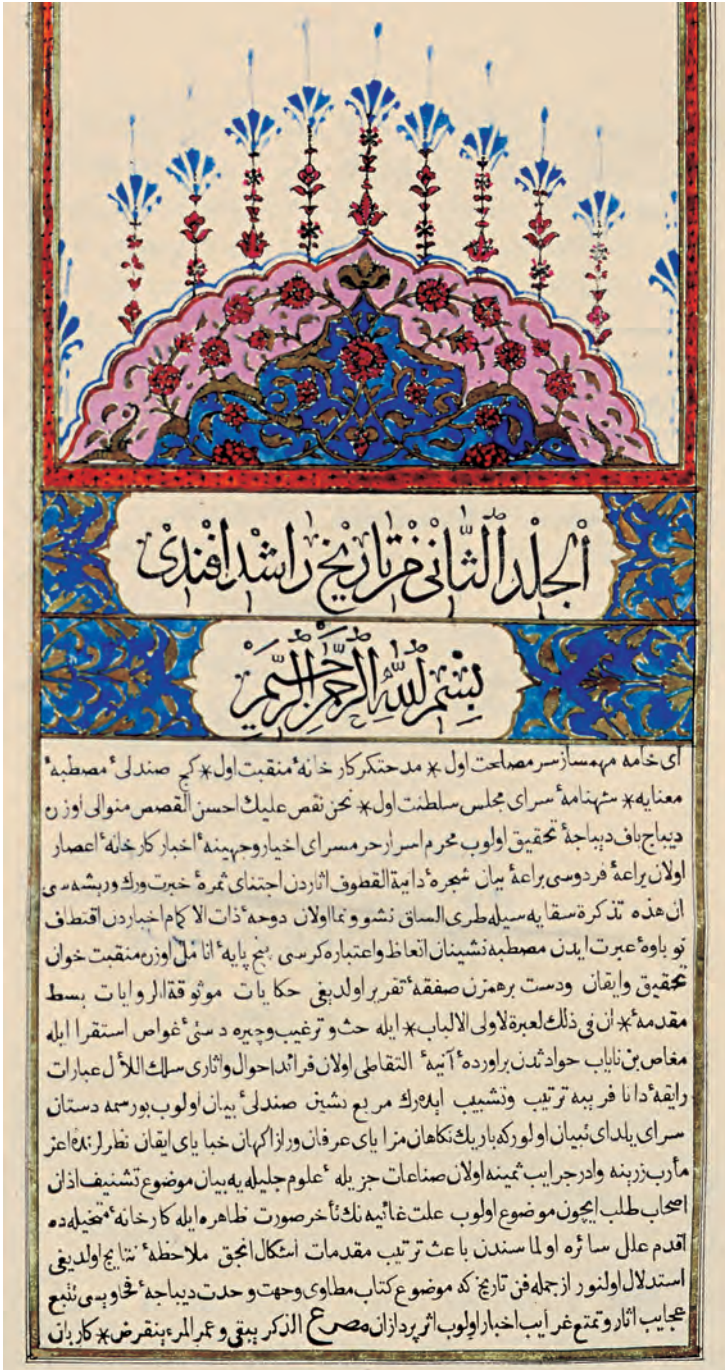 الجلد الثانى من تاريخ راشد افندى
بسم الله الرحمن الرحيم
اى خامه مهمساز سر مصلحت اول * مدحتكر كار خانهٔ منقبت اول * كج صندلىٔ مصطبهٔ
معنايه * شهنامهٔ سراى مجلس سلطنت اول * نحن نقص عليك احسن القصص منوالى اوزره
ديباج باف ديباجهٔ تحقيق اولوب محرم اسرار حرمسراى اخيار وجهينهٔ اخبار كارخانهٔ اعصار
اولان براعهٔ فردوسى براعهٔ بيان شجرهٔ دانية القطوف اثاردن اجتناى ثمرهٔ خبرت ورك وريشه سى
ان هذه تذكرة سقايه سيله طرى الساق نشو ونما اولان دوحهٔ ذات الاكام اخباردن اقتطاف
نوباوهٔ عبرت ايدن مصطبه نشينان اتعاظ واعتباره كرسى پنج پايهٔ انامل اوزره منقبت خوان
تحقيق وايقان ودست برهمزن صفقهٔ تقرير اولديغى حكايات موثوقة الروايات بسط
مقدمهٔ * ان فى ذلك لعبرة لاولى الالباب * ايله حث وترغيب وچيره دستىٔ غواص استقرا ايله
مغاص بن ناياب حوادثدن براوردهٔ آنيهٔ التقاطى اولان فرائد احوال واثارى سلك اللأل عبارات
رايقهٔ دانا فريبه ترتيب وتشبيب ايدرك مربع نشين صندلىٔ بيان اولوب بو رسمه دستان
سراى يلداى تبيان اولور كه باريك نكاهان مزاياى عرفان ورازا كهان خباياى ايقان نظرلرنده اعز
مأرب زرينه وادر جرايب ثمينه اولان صناعات جزيلهٔ علوم جليله يه بيان موضوع تشنيف اذان
اصحاب طلب ايچون موضوع اولوب علت غائيه نك تأخر صورت ظاهره ايله كارخانهٔ متخيله ده
اقدم علل سائره اولماسندن باعث ترتيب مقدمات اشكال انجق ملاحظهٔ نتايج اولديغى
استدلال اولنور از جمله فن تاريخ كه موضوع كتاب مطاوى وجهت وحدت ديباجهٔ فحاويسى تتبع
عجايب اثار وتمتع غرايب اخبار اولوب اثر پردازان مصرع الذكر يبقى وعمر المرء ينقرض * كاربان